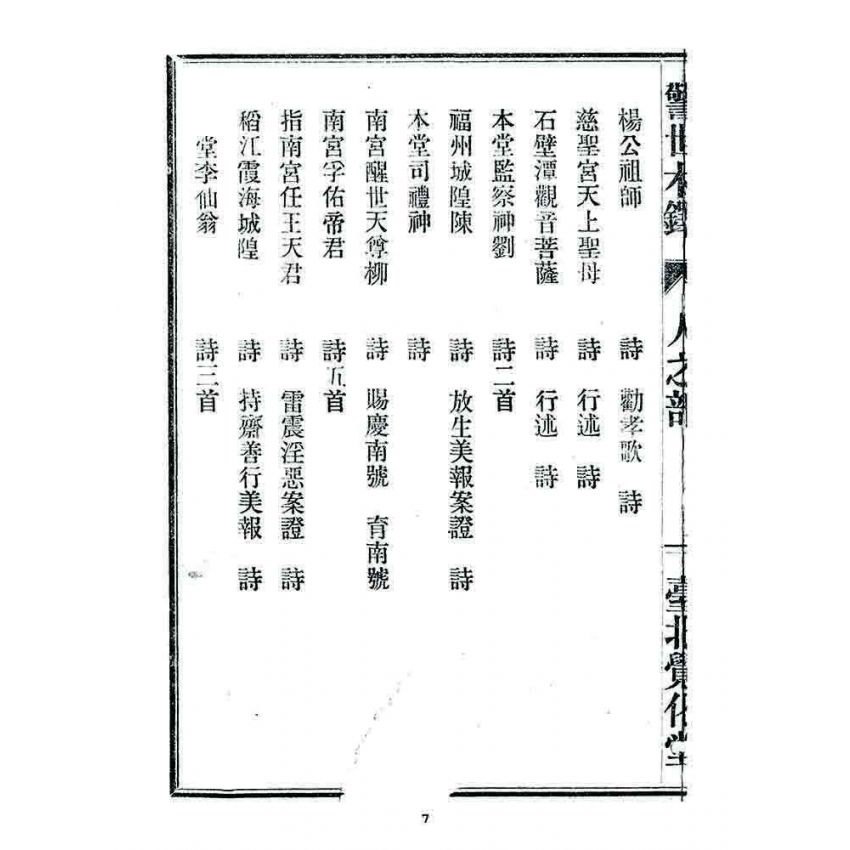 警世木鐸 人之部 一 臺北覺化堂
楊公祖師 詩 勸孝歌 詩
慈聖宮天上聖母 詩 行述 詩
石壁潭觀音菩薩 詩 行述 詩
本堂監察神劉 詩二首
福州城隍陳 詩 放生美報案證 詩
本堂司禮神 詩
南宮醒世天尊柳 詩 賜慶南號 育南號
南宮孚佑帝君 詩五首
指南宮任王天君 詩 雷震淫惡案證 詩
稻江霞海城隍 詩 持齋善行美報 詩
堂李仙翁 詩三首
7